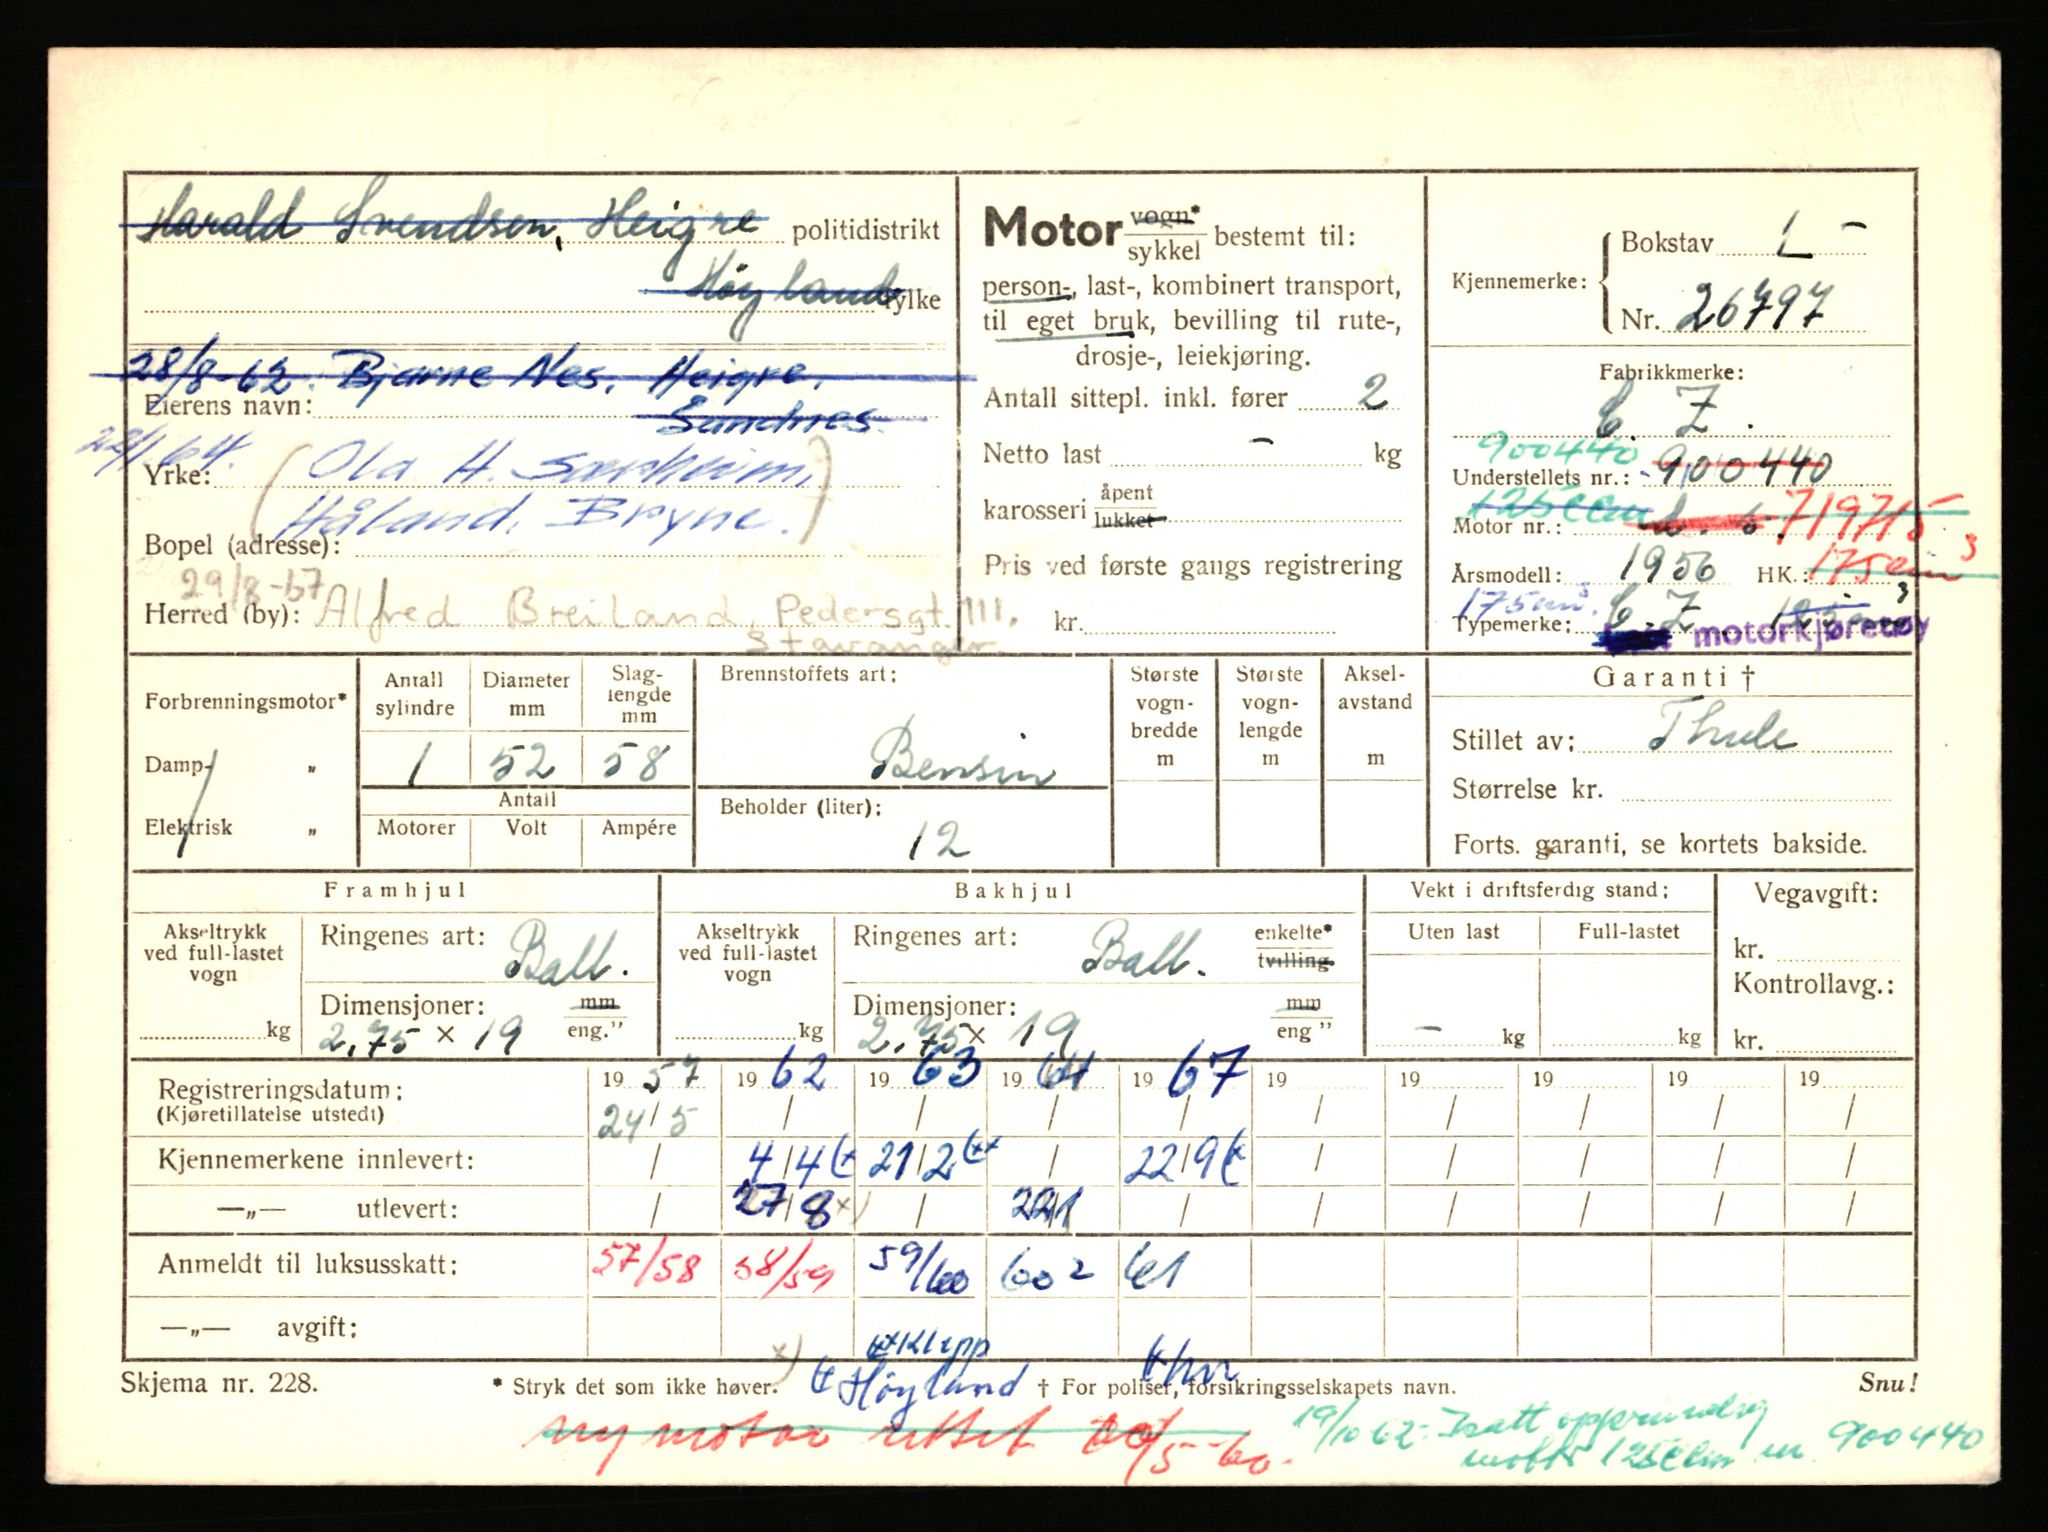 Harald Svendsen, Heigre politidistrikt
Høyland fylke
28/8-62. Bjarne Nes. Heigre.
Eierens navn: Sandnes
22/1 64.
Yrke: (Ola H. Særheim,
Håland, Bryne.)
Bopel (adresse):
29/8-67
Herred (by): Alfred Breiland, Pedersgt. 111.
Stavanger.
Motor vogn* sykkel bestemt til:
person-, last-, kombinert transport,
til eget bruk, bevilling til rute-,
drosje-, leiekjøring.
Antall sittepl. inkl. fører 2
Netto last - kg
karosseri åpent lukket
Pris ved første gangs registrering
kr.
Kjennemerke: Bokstav L -
Nr. 26797
Fabrikkmerke:
C. Z.
900440
Understellets nr.: 900440
125ccm
Motor nr.: 719715
Årsmodell: 1956 HK.: 175cm3
175cm3. C. Z. 125
Typemerke: motorkjøretøy
Forbrenningsmotor*
Damp- „
Elektrisk „
Antall sylindre
Diameter mm
Slaglengde mm
1 52 58
Antall
Motorer Volt Ampére
Brennstoffets art:
Bensin
Beholder (liter):
12
Største vognbredde m
Største vognlengde m
Akselavstand m
Garanti †
Stillet av: Thule
Størrelse kr.
Forts. garanti, se kortets bakside.
Framhjul
Akseltrykk ved full-lastet vogn
kg
Ringenes art: Ball.
Dimensjoner: mm eng."
2,75 × 19
Bakhjul
Akseltrykk ved full-lastet vogn
kg
Ringenes art: Ball. enkelte* tvilling
Dimensjoner: mm eng"
2,75 × 19
Vekt i driftsferdig stand:
Uten last Full-lastet
- kg kg
Vegavgift:
kr.
Kontrollavg.:
kr.
Registreringsdatum: 19 57 19 62 19 63 19 64 19 67 19 19 19 19 19
(Kjøretillatelse utstedt) 24/5 / / / / / / / / /
Kjennemerkene innlevert: / 4/4 (x 21/2 (xx / 22/9 (x / / / / /
—„— utlevert: / 27/8 x) / 22/1 / / / / / /
Anmeldt til luksusskatt: 57/58 58/59 59/60 60 2 61
—„— avgift:
x) (xx Klepp
(x Høyland
Skjema nr. 228. * Stryk det som ikke høver. † For poliser, forsikringsselskapets navn. Snu!
ny motor utset /5-60.
19/10 62- Isatt opprinnelig
motor 125ccm nr. 900440